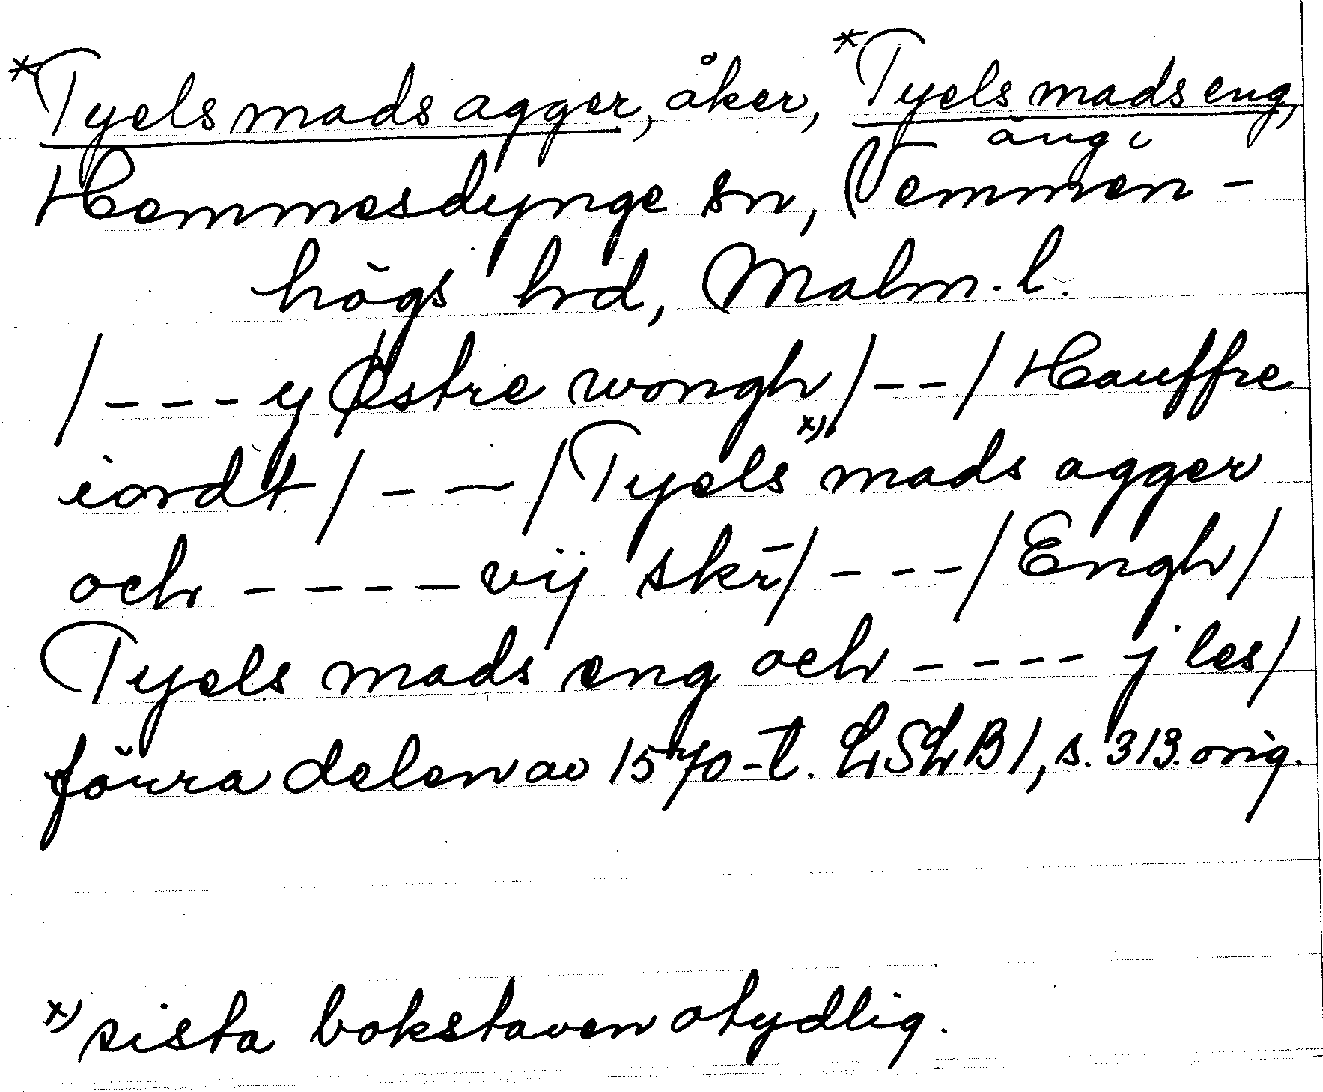 *Tyels mads agger, åker, *Tyels mads eng,
äng i
Hemmesdynge sn, Vemmen-
högs hrd, Malm. l.
/ - - - y Østre wongh / - - / Hauffre
iordt / - - / Tyels x) mads agger
och - - - - vij skr̄ / - - - / Engh /
Tyels mads eng och - - - - j les /
förra delen av 1570-t. LSLB 1, s. 313. orig.
x) sista bokstaven otydlig.